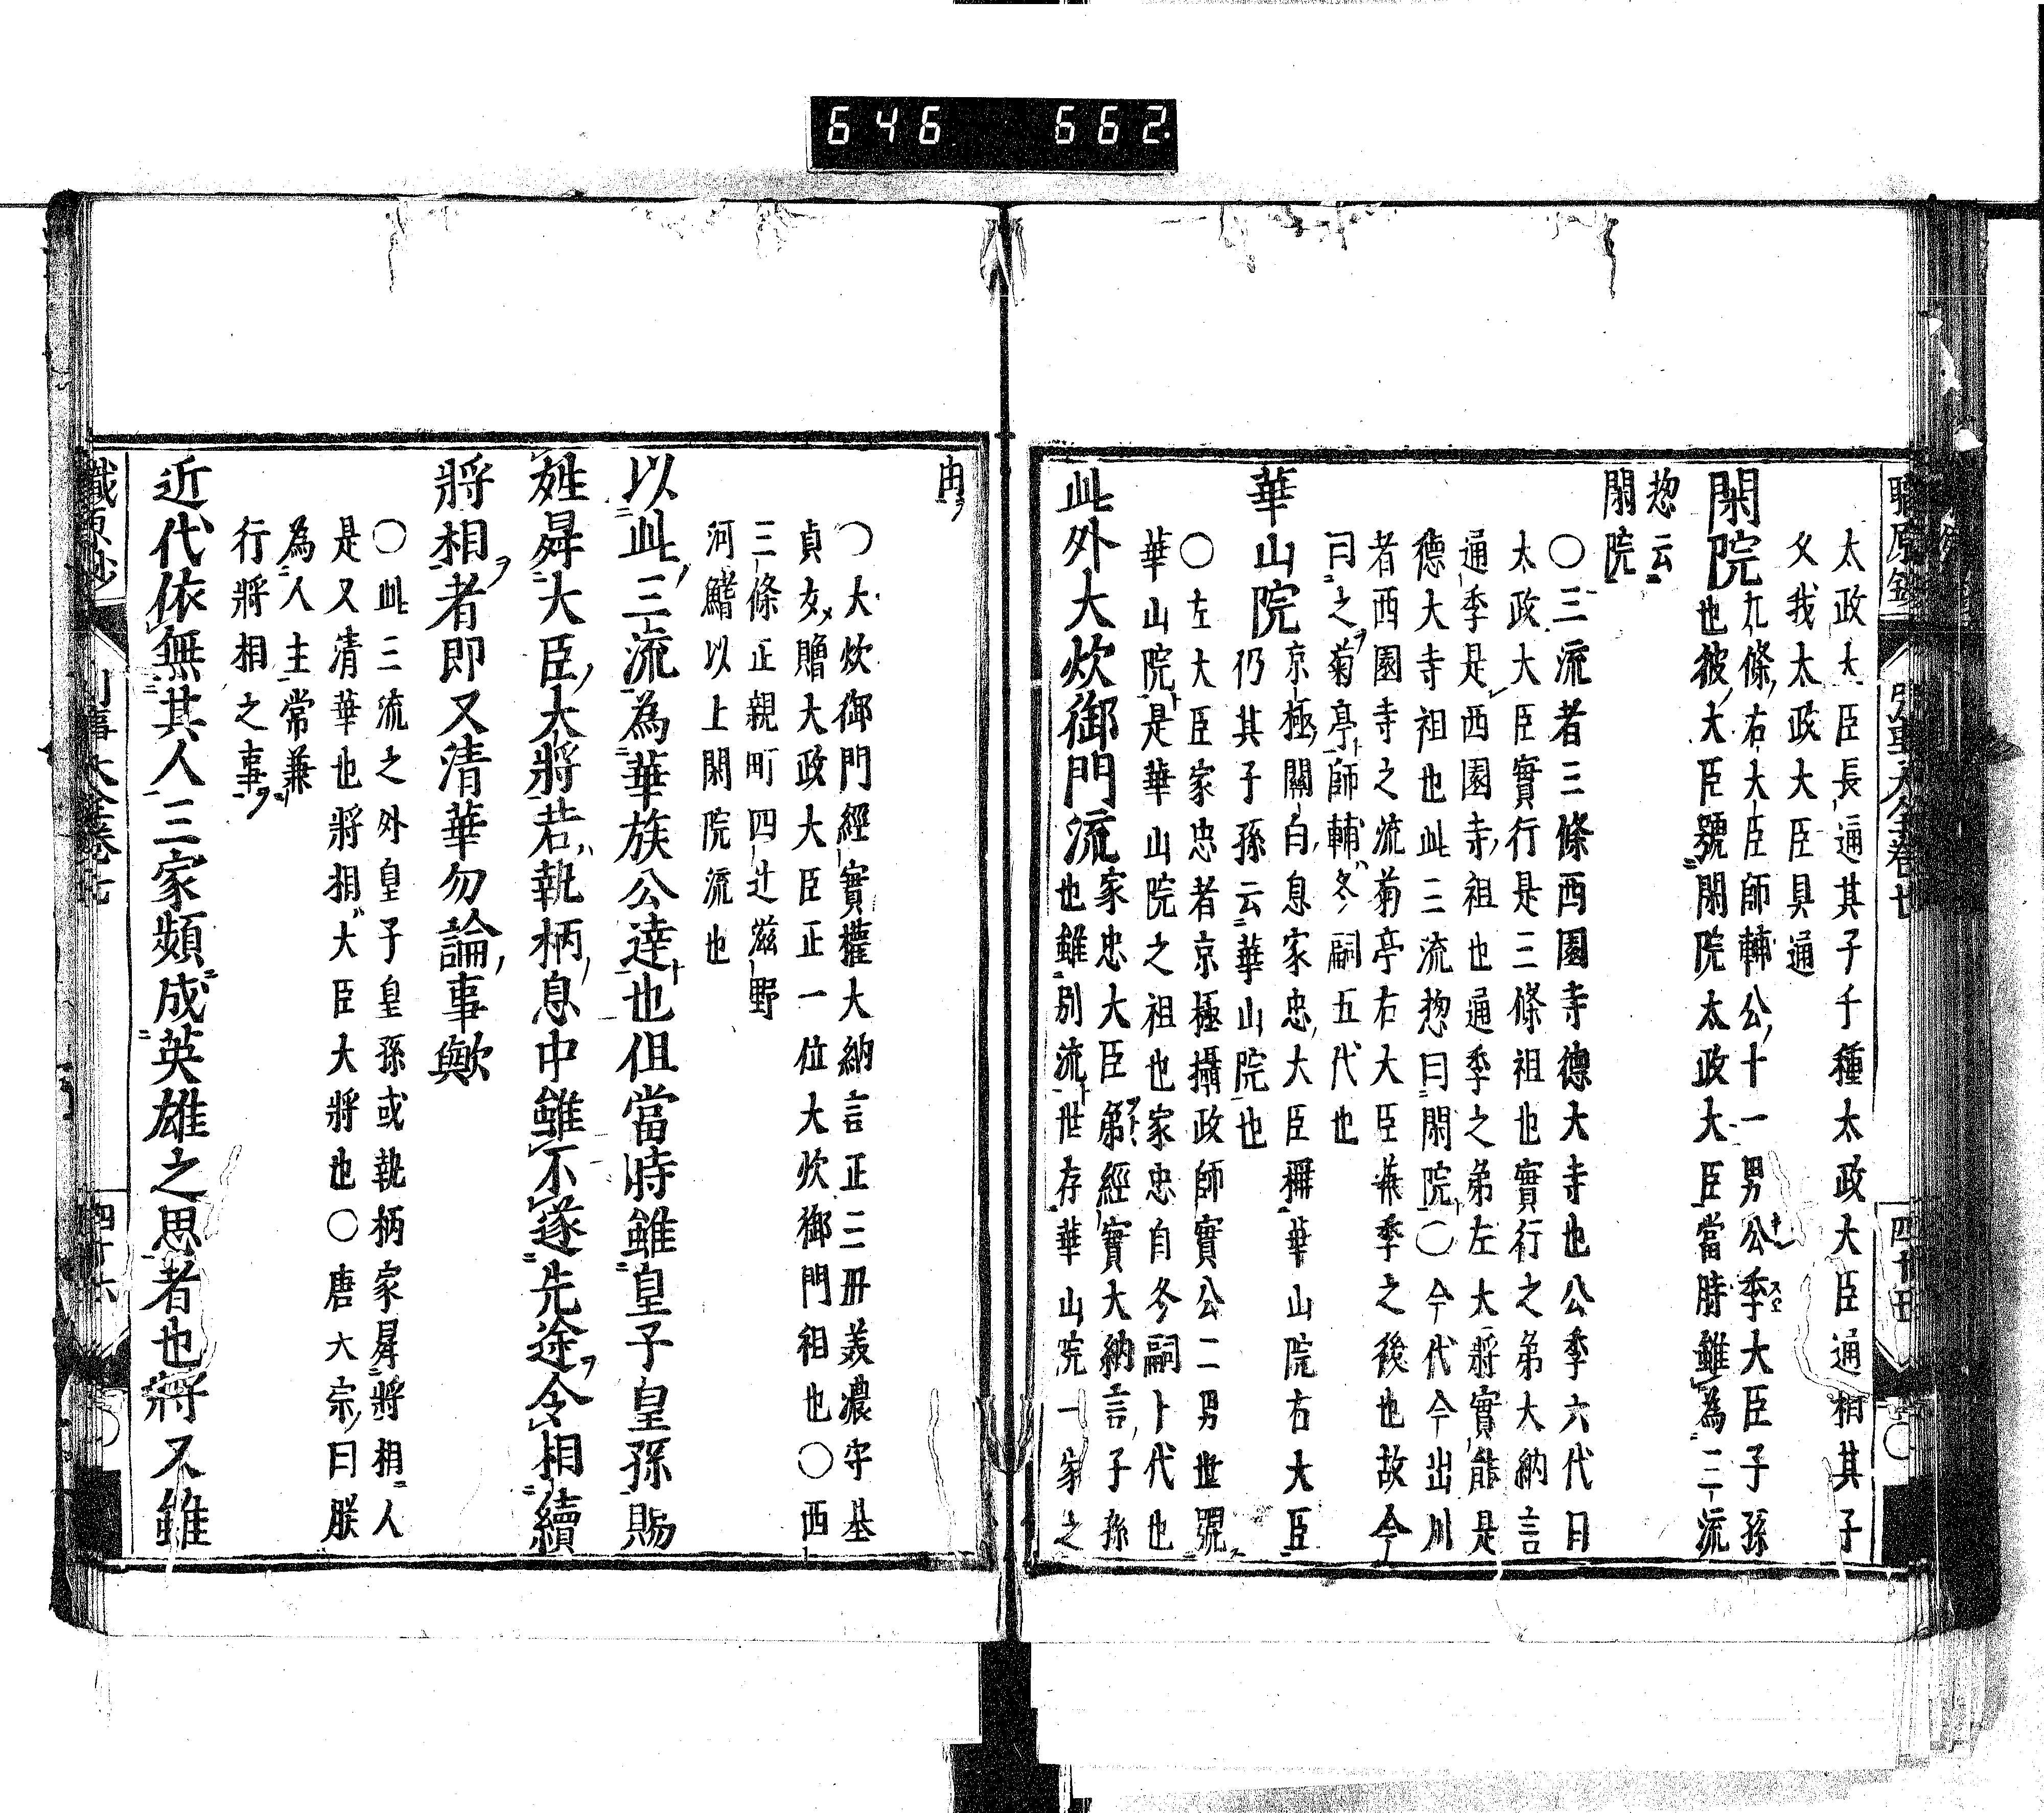 646 662.
太政大臣長通其子千種太政大臣通相其子
父我太政大臣具通
閑院
九條右大臣師輔公十一男公季大臣子孫
也彼大臣號閑院太政大臣當時雖為三流
惣云
閑院
〇三流者三條西園寺德大寺也公季六代曰
太政大臣實行是三條祖也實行之弟大納言
通季是西園寺祖也通季之弟左大將實能是
德大寺祖也此三流惣曰閑院〇今代今出川
者西園寺之流菊亭右大臣兼季之後也故今
曰之菊亭師輔冬嗣五代也
華山院
京極關白息家忠大臣稱華山院右大臣
仍其子孫云華山院也
〇左大臣家忠者京極攝政師實公二男世號
華山院是華山院之祖也家忠自冬嗣卜代也
此外大炊御門流
家忠大臣弟經實大納言子孫
也雖別流世存華山院一家之
由
〇大炊御門經實權大納言正三母美濃守基
貞女贈大政大臣正一位大炊御門祖也〇西
三條正親町四辻滋野
河鰭以上閑院流也
以此三流為華族公達也但當時雖皇子皇孫賜
姓昇大臣大將若執柄息中雖不遂先途令相續
將相者即又清華勿論事歟
〇此三流之外皇子皇孫或執柄家昇將相人
是又清華也將相大臣大將也〇唐大宗曰朕
為人主常兼
行將相之事
近代依無其人三家頗成英雄之思者也將又雖